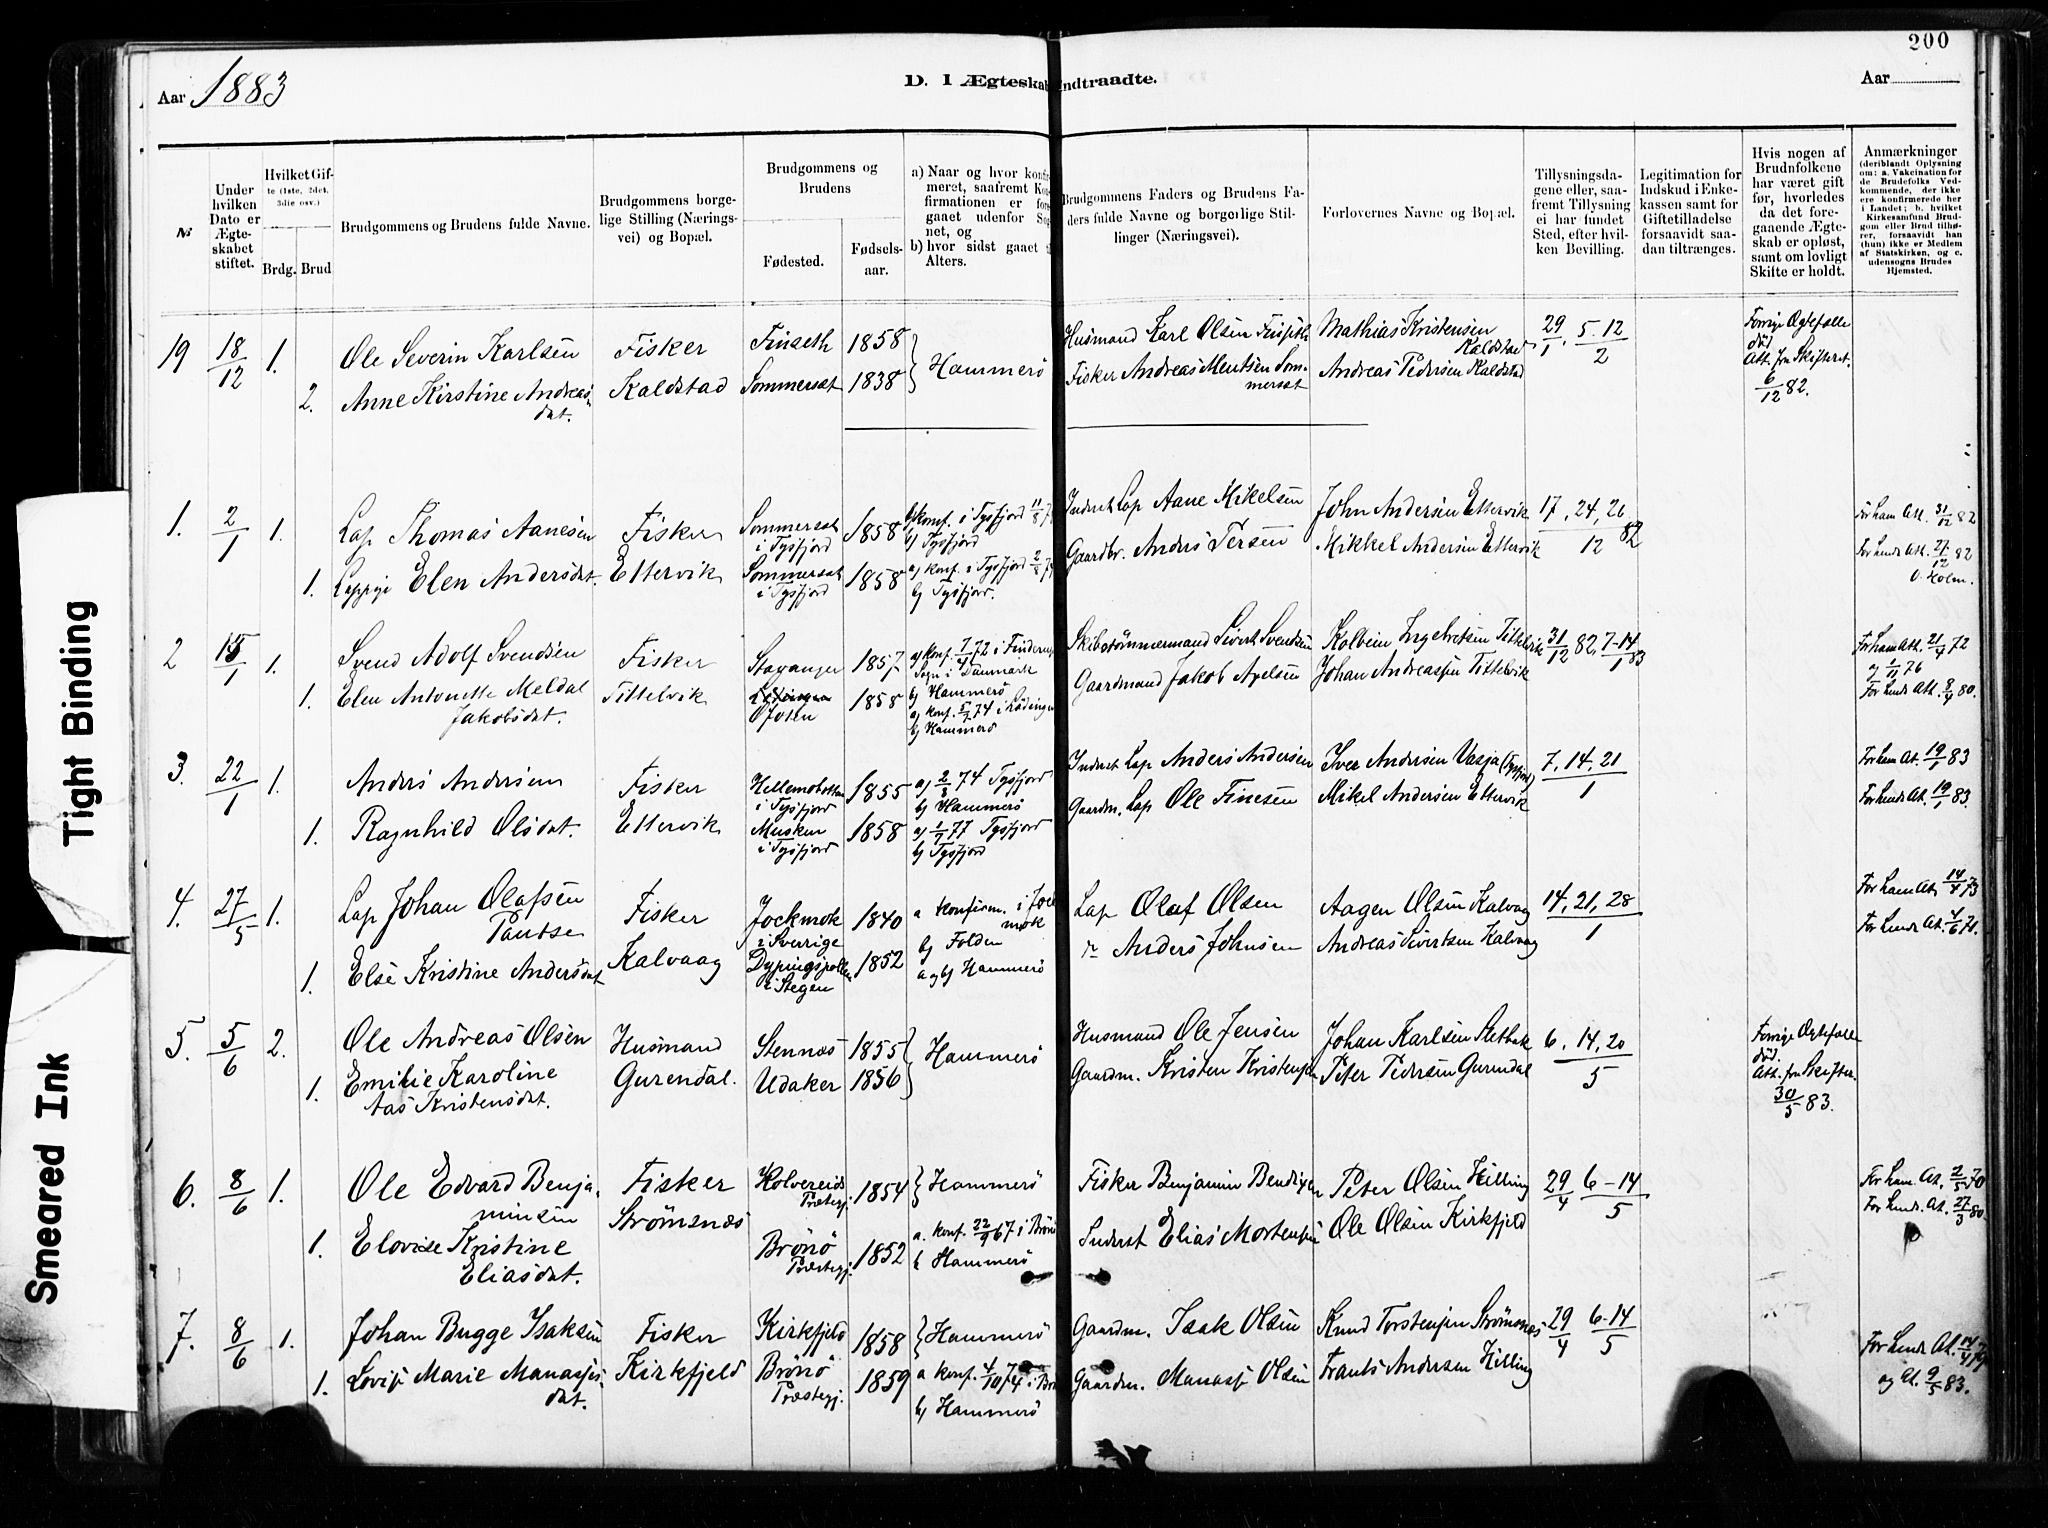 200
Aar 1883
D. I Ægteskab Indtraadte.
Aar
№
Under hvilken Dato er Ægteskabet stiftet.
Hvilket Gifte (1ste, 2det, 3die osv.)
Brdg. Brud
Brudgommens og Brudens fulde Navne.
Brudgommens borgelige Stilling (Næringsvei) og Bopæl.
Brudgommens og Brudens
Fødested.
Fødselsaar.
b) hvor sidst gaaet til Alters.
Brudgommens Faders og Brudens Faders fulde Navne og borgerlige Stillinger (Næringsvei).
Forlovernes Navne og Bopæl.
Tillysningsdagene eller, saafremt Tillysning ei har fundet Sted, efter hvilken Bevilling.
Legitimation for Indskud i Enkekassen samt for Giftetilladelse forsaavidt saadan tiltrænges.
Hvis nogen af Brudnfolkene har været gift før, hvorledes da det foregaaende Ægteskab er opløst, samt om lovligt Skifte er holdt.
Anmærkninger
(deriblandt Oplysning om: a. Vakcination for de Brudefolks Vedkommende, der ikke ere konfirmerede her i Landet; b. hvilket Kirkesamfund Brudgom eller Brud tilhører, forsaavidt han (hun) ikke er Medlem af Statskirken, og c. udensogns Brudes Hjemsted.
19 18/12 1. Ole Severin Karlsen Fisker Finseth 1858 Hammerö Husmand Karl Olsen Mathias Kristensen Kaldstad 29/1. 5-12/2 Forrige Ægtefælle död Att. fra Skifteret. 6/12 82.
2. Anne Kirstine Andreasdat. Kaldstad Sommerset 1838 Fisker Andreas Mentsen Sommerset Andreas Pedersen Kaldstad
1. 2/1 1. Lap Thomas Aanesen Fisker Sommerset i Tysfjord 1858 konf. i Tysfjord b) Tysfjord Inderst Lap Aane Mikelsen John Andersen Ettervik 17, 24, 26/12 82 For ham Att. 31/12 82
1. Elen Andersdat. Ettervik Sommerset i Tysfjord 1858 a) konf. i Tysfjord b) Tysfjord. Gaardbr. Anders Persen Mikkel Andersen Ettervik For hende Att. 27/12 82
2 15/1 1. Svend Adolf Svendsen Fisker Stavanger 1857 a) konf. 7/4 72 i Finderup Sogn i Danmark b) Hammerö Skibstömmermand Sivert Svendsen Kolbein Ingebretsen Tittelvik 31/12 82, 7-14/1 83 For ham Att. 21/4 72 og 1/11 76
1. Elen Antonette Meldal Jakobsdat. Tittelvik Ofoten 1858 a) konf. 5/7 74 i Lödingen b) Hammerö Gaardmand Jakob Johan Andreassen Tittelvik For hende Att. 8/4 80.
3. 22/1 1. Anders Andersen Fisker Hellemobotten i Tysfjord 1855 a) 2/8 74 Tysfjord b) Hammerö Inderst Lap Anders Andersen Iver Andersen (Tysfjord) 7, 14, 21/1 For ham At. 19/1 83
1. Ragnhild Olsdat. Ettervik Musken i Tysfjord 1858 a) 1/7 77 Tysfjord b) Tysfjord Gaardm. Lap Ole Finesen Mikel Andersen Ettervik For hende At. 19/1 83.
4. 27/5 1. Lap Johan Olafsen Fisker Jockmok i Sverige 1840 a konfirm. i Jockmok b) Folden Lap Olaf Olsen Aagen Olsen Kalvaag 14, 21, 28/1 For ham At. 14/4 73
1. Else Kristine Andersdat Kalvaag i Stegen 1852 a og b) Hammerö Anders Johnsen Andreas Sivertsen Kalvaag For hende At. 4/6 71.
5. 5/6 2. Ole Andreas Olsen Husmand Stennæs 1855 Hammerö Husmand Ole Jensen Johan Karlsen 6, 14, 20/5 Forrige Ægtefælle död. Att. fra Skifter. 30/5 83.
1. Emilie Karoline Aas Kristensdat. Gurendal. Udaker 1856 Gaardm. Kristen Kristensen Peter Pedersen Gurendal
6. 8/6 1. Ole Edvard Benjaminsen Fisker Kolvereids Præstegj. 1854 Hammerö Fisker Benjamin Bendixen Peter Olsen Hilling 29/4 6-14/5 For ham. At. 2/5 70
1. Elovise Kristine Eliasdat. Strömsnæs Brönö Præstegj. 1852 a. konf. 22/9 67 i Brönö b Hammerö Inderst Elias Mortensen Ole Olsen Kirkfjeld For hende. At. 27/3 80.
7. 8/6 1. Johan Bugge Isaksen Fisker Kirkfjeld 1858 Hammerö Gaardm. Isak Olsen Knud Torstensen Strömsnæs 29/4 6-14/5 For hende At.
1. Lovise Marie Manassesdat. Kirkfjeld Brönö Præstegj. 1859 a konf. 4/10 74 i b) Hammerö Gaardm. Manasse Olsen Frants Andersen Hilling og At. 9/5 83.
Tight Binding
Smeared Ink